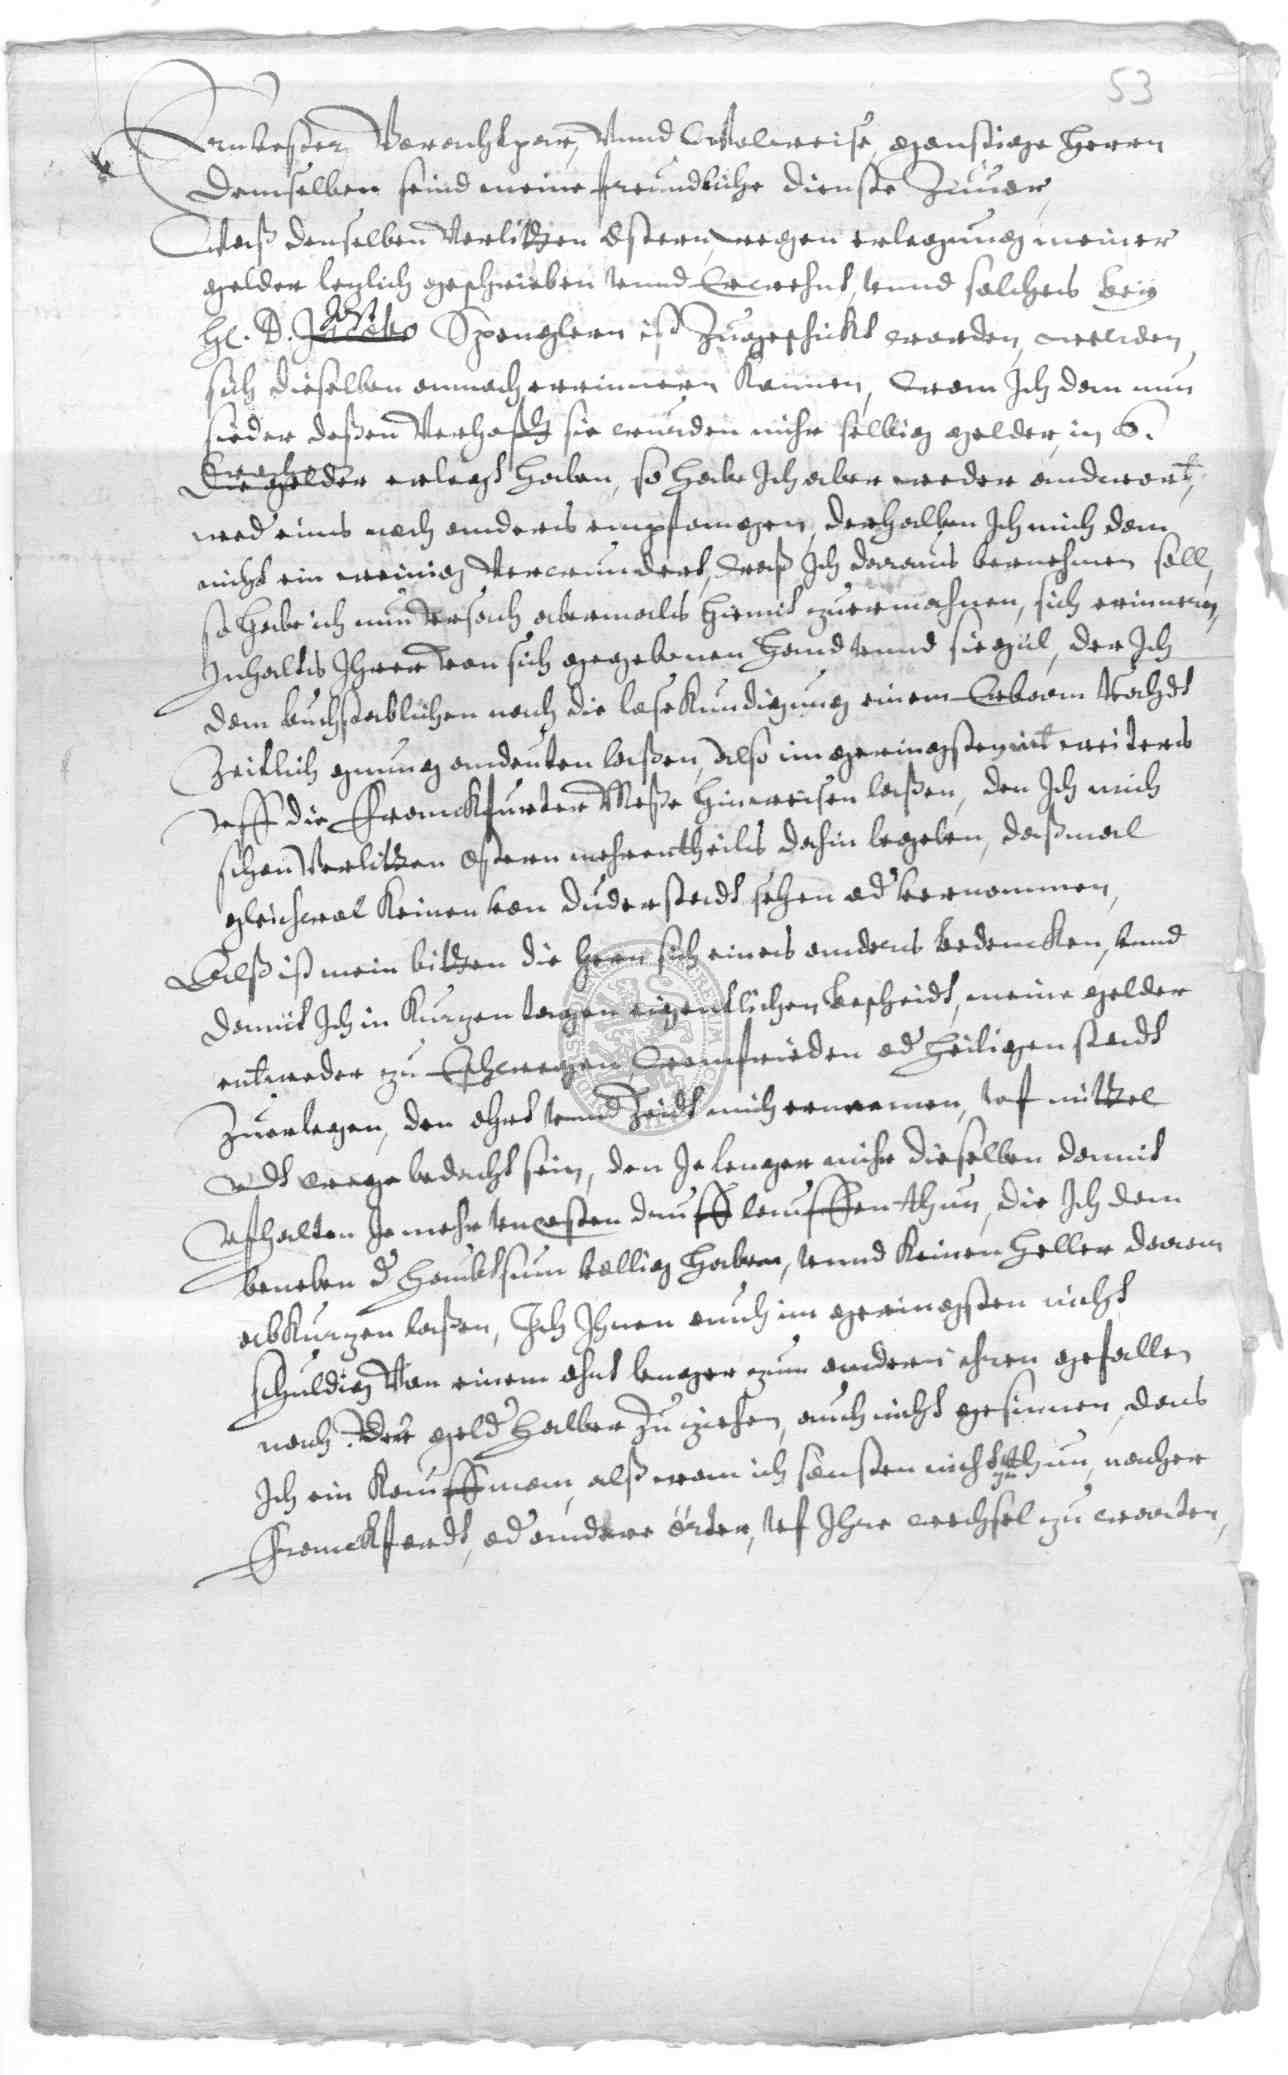 53
Ernvester Vorachtpar, Vnnd Wolweise, gonstige Herrn
Demselben seind meine freundtliche dienste Zuuor,
Waß denselben Verlitten Ostern, wegen erlegung meiner
gelder letzlich geschrieben vnnd Erwehnt, vnnd solches bey
H. D. Jost Spenglern ist zugeschickt worden, werden
sich dieselben annoch errinnern Konnen, Wan Ich dan nun
sieder deßen Verhofft sie wurden mihr selbig gelder, in
erlegt haben, so habe Ich aber weder andwort,
wed eins noch anders empfangen, derhalben Ich mich dan
nicht ein wenig Verwundert, Waß Ich daraus vernehmen soll,
so habe ich nun Vrsach abermalls hiemit zuermahnen, sich erinnern,
Inhalts Ihrer von sich gegebenen Hand vnnd Siegiil, der Ich
dem buchstablichen nach die losekundigung einem Erbarn Rahdt
Zeitlich gnung andeuten laßen, also im geringsten nit weiters
Vff die Franckfurter Meße hinweisen laßen, den Ich mich
schon Verlitten Ostern mehrentheils dahin begeben, daßmal
gleichwol Keinen von Duderstadt sehen od vernommen,
Alß ist mein bitten die Herrn sich eines anders bedencken, vnnd
damit Ich in Kurzen tagen eigentlichen bescheidt, meine gelder
entweder zu Eschwegen, Wanfrieden od Heiligenstadt
Zuerlegen, den ohrt vnnd Zeidt mich ernennen, vf mittel
vndt wege bedacht sein, den Je lenger mihr dieselben damit
Vfhalten Je mehr vncosten druff lauffen thun, die Ich dan
beneben d Haubtsum vollig haben, vnnd Keinen Heller daran
abkurzen laßen, Ich Ihnen auch im geringsten nicht
schuldig Von einem ohrt lenger zum andern ihren gefallen
nach der geld halber zu ziehen, auch nicht gesinnen, dans
Ich ein Kauffman, alß wan ich sonsten nicht zu thun, nacher
Franckfordt, od andere örter, vf Ihre wechsel zu warten,